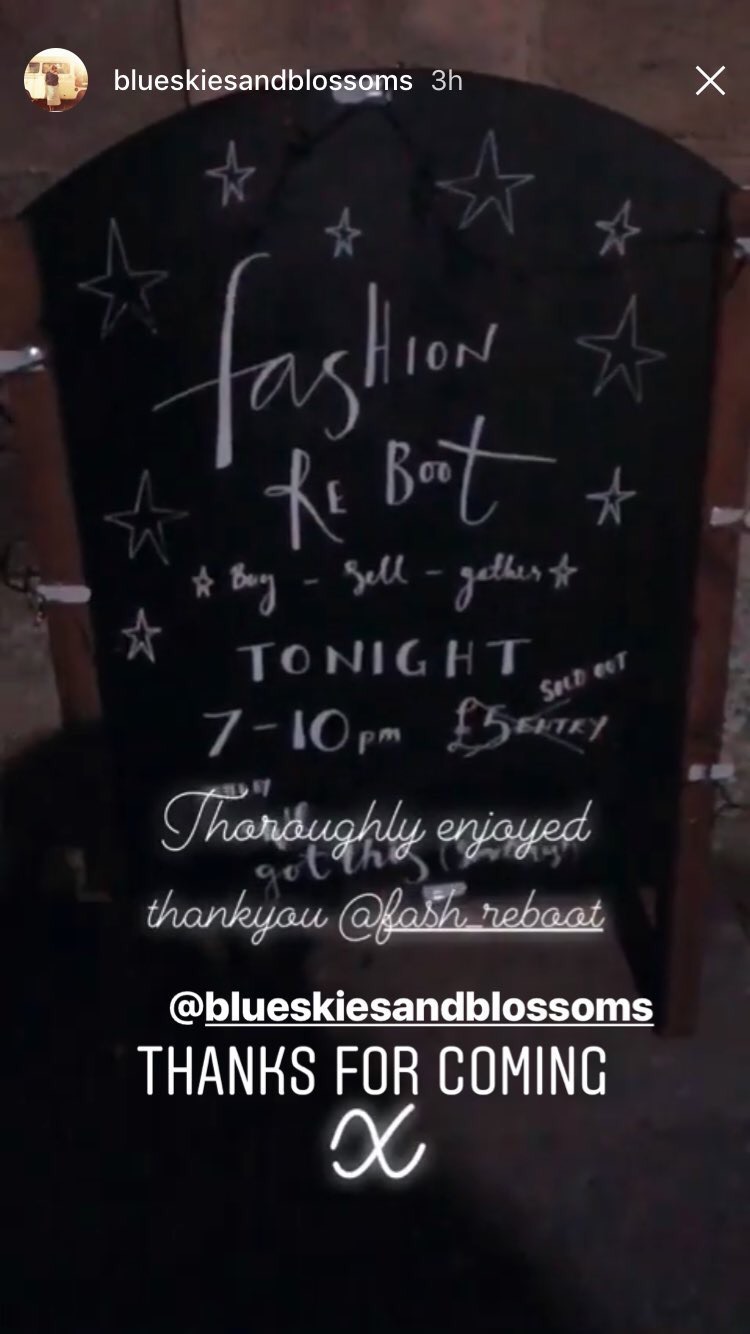 blueskiesandblossoms 3h
fasHION
RE BooT
Buy - Sell - gather
TONIGHT
SOLD OUT
7-10pm £5 ENTRY
Thoroughly enjoyed
got this
thankyou @fash_reboot
@blueskiesandblossoms
THANKS FOR COMING
x